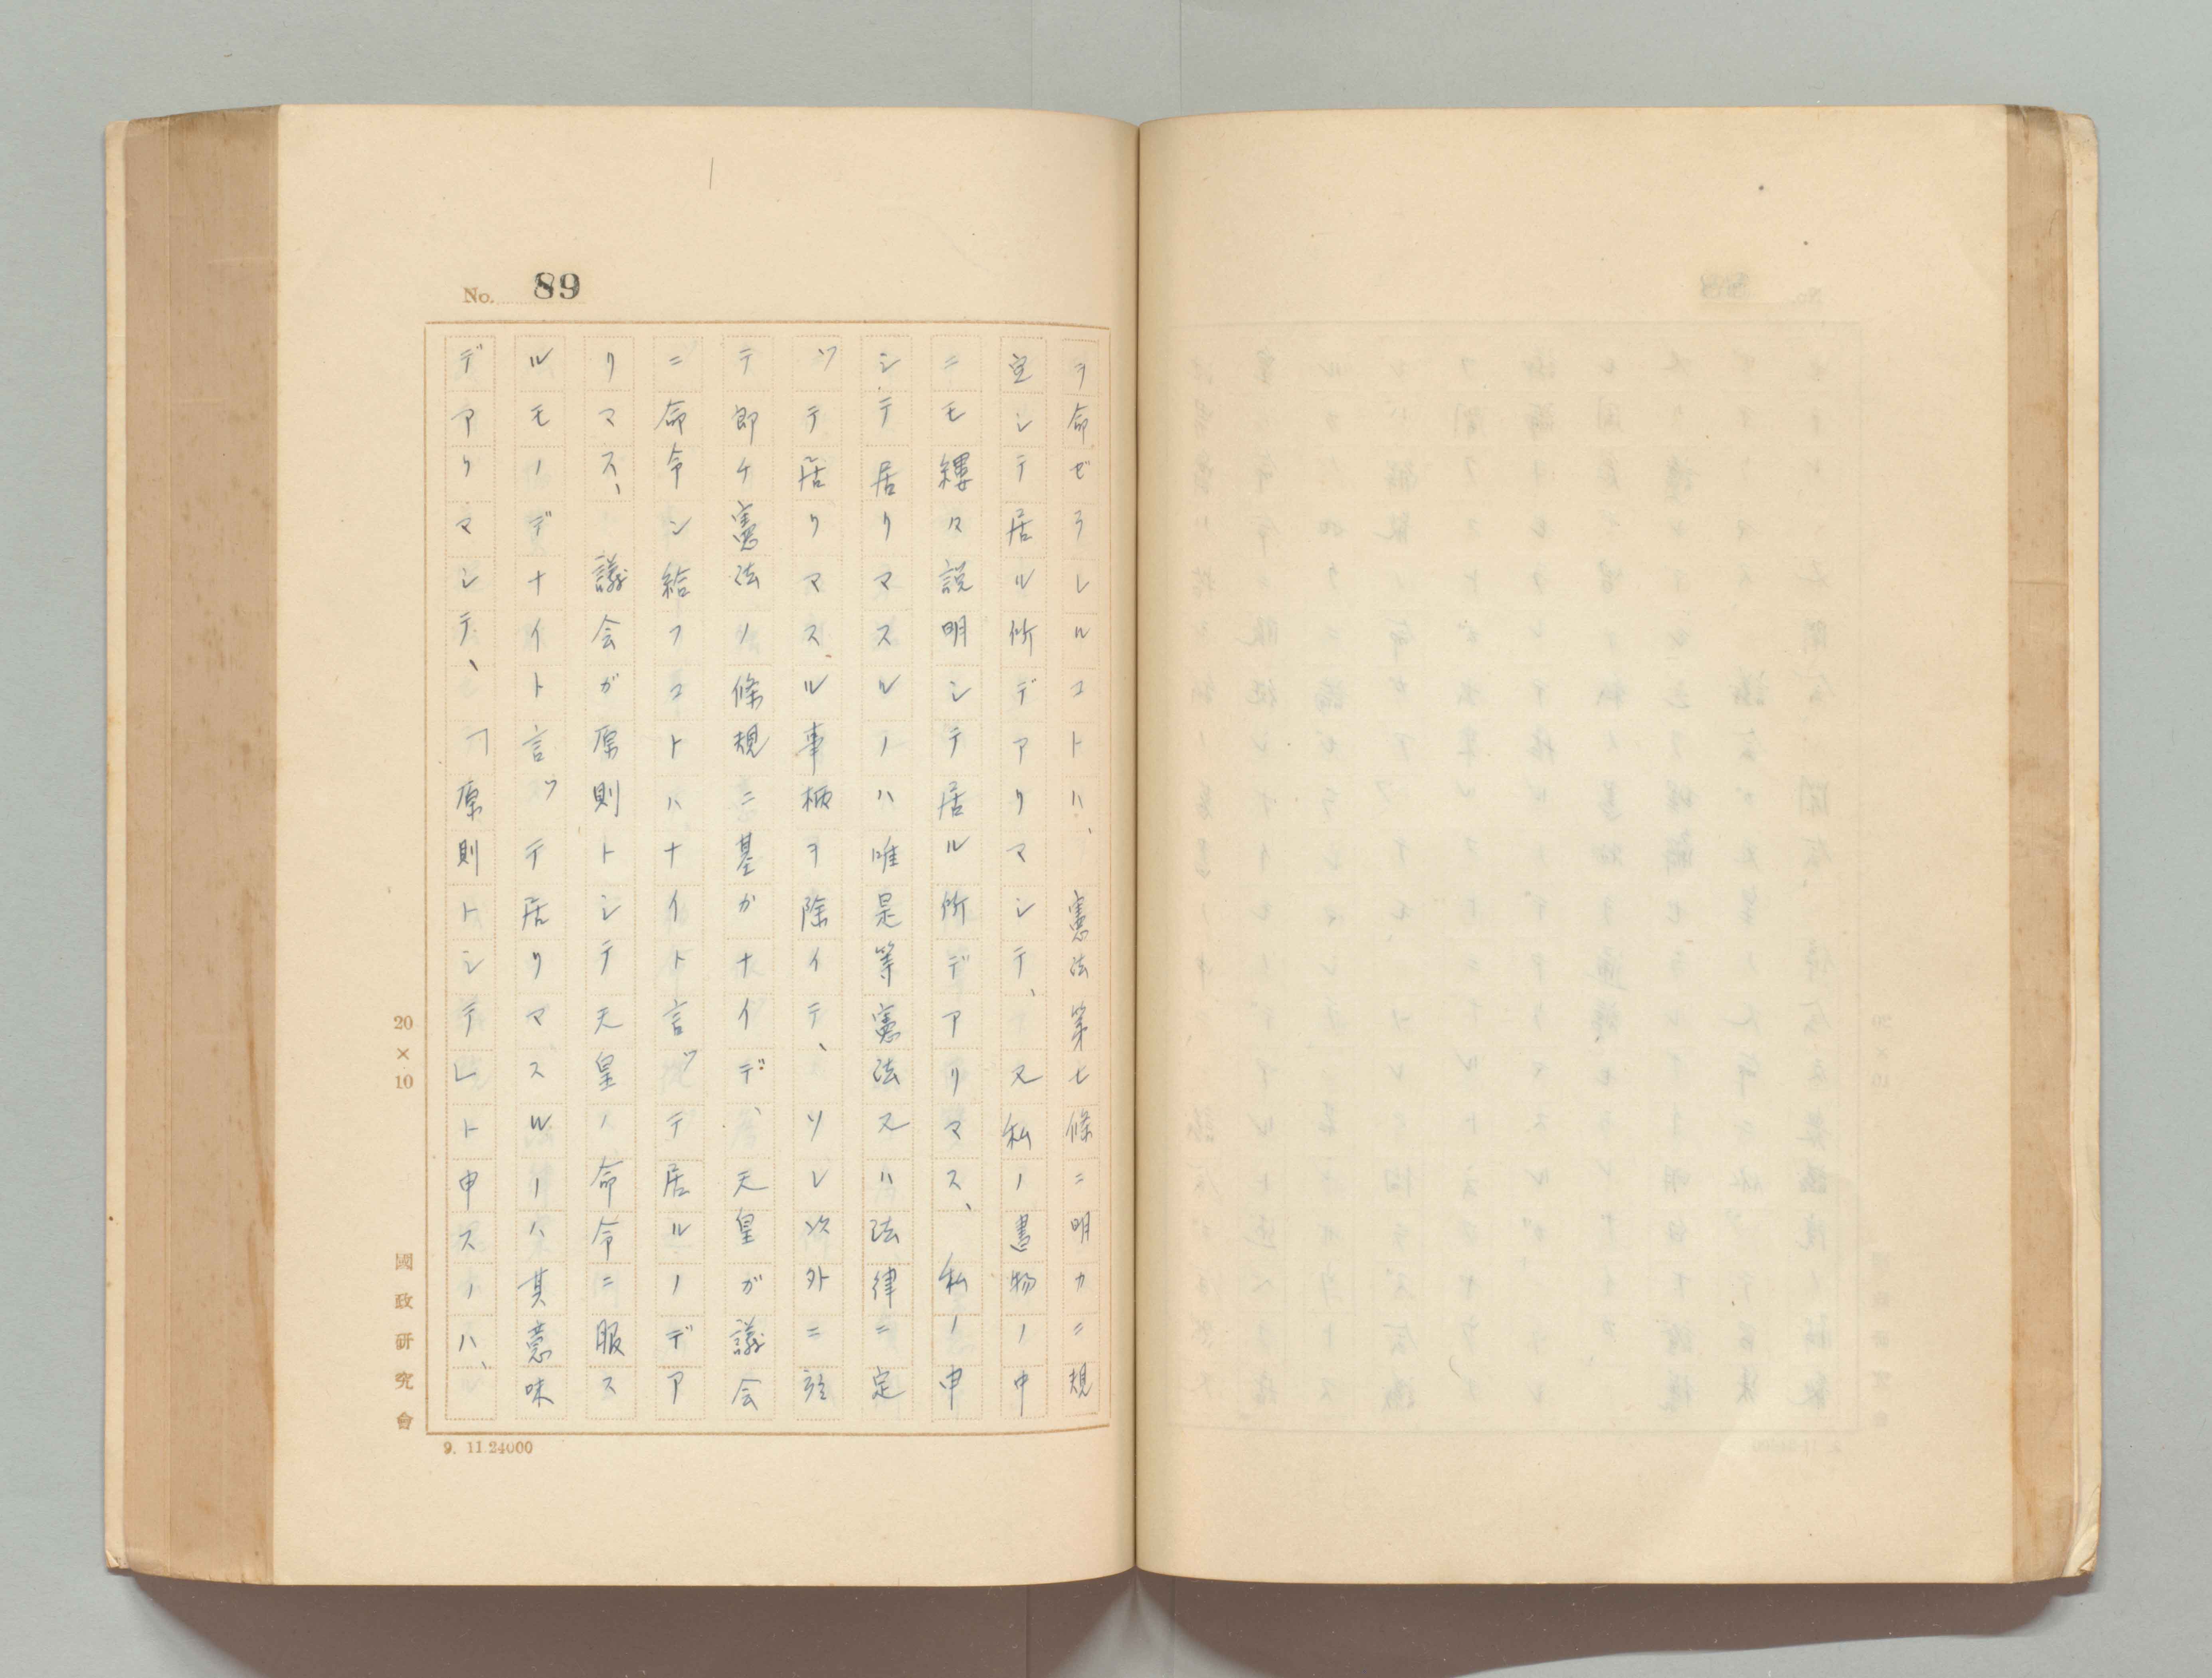 No. 89
ヲ命ゼラレルコトハ、憲法第七條ニ明カニ規
定シテ居ル所デアリマシテ、又私ノ書物ノ中
ニモ縷々説明シテ居ル所デアリマス、私ノ申
シテ居リマスルノハ唯是等憲法又ハ法律ニ定
ツテ居リマスル事柄ヲ除イテ、ソレ以外ニ於
テ即チ憲法ノ條規ニ基カナイデ、天皇ガ議会
ニ命令シ給フコトハナイト言ツテ居ルノデア
リマス、議会ガ原則トシテ天皇ノ命令ニ服ス
ルモノデナイト言ツテ居リマスルノハ其意味
デアリマシテ、「原則トシテ」ト申スノハ、
20×10
國政研究會
9. 11.24000